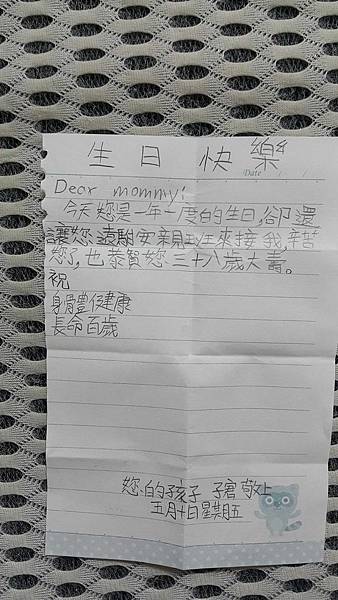 生日快樂
Date
Dear mommy:
今天您是一年一度的生日,卻還
讓您遠離安親班來接我,辛苦
您,也恭賀您三十八歲大壽。
祝
身體健康
長命百歲
您的孩子 子 敬上
五月十日星期五